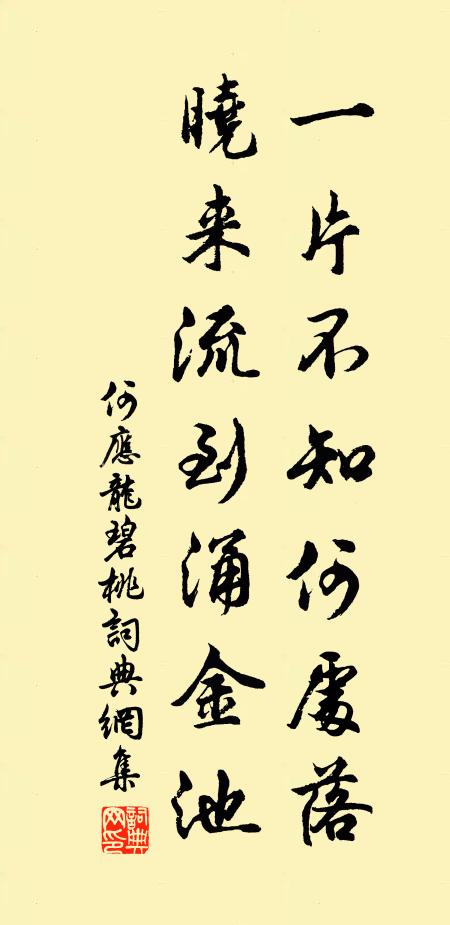 一片不知何處落
曉来流到涌金池
何應龍碧桃詞典網集
詞典网印